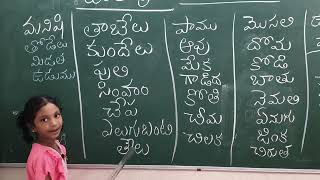 మనిషి
తోడేలు
మిడుత
ఉడుము
తాబేలు
కుందేలు
పులి
సింహం
చేప
ఎలుగుబంటి
తేలు
పాము
ఆవు
మేక
గాడిద
కోతి
చీమ
చిలక
మొసలి
దోమ
కోడి
బాతు
నెమలి
ఏనుగు
జింక
చిరుత